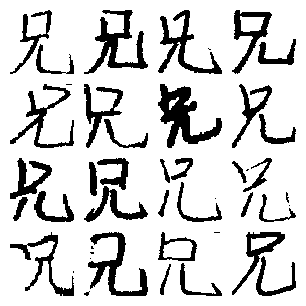 兄兄兄兄
兄兄兄兄
兄兄兄兄
兄兄兄兄